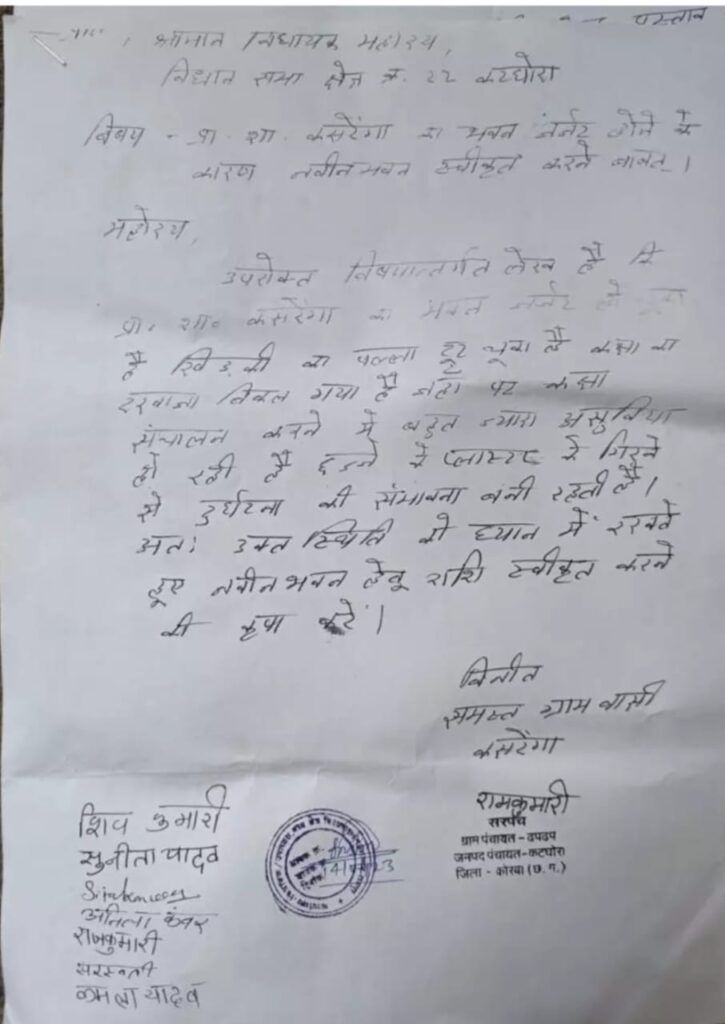 प्रस्ताव
श्रीमान विधायक महोदय,
विधान सभा क्षेत्र क्र. 22 कटघोरा
विषय - प्रा. शा. कसरेंगा का भवन जर्जर होने के
कारण नवीन भवन स्वीकृत करने बाबत् ।
महोदय,
उपरोक्त विषयान्तर्गत लेख है कि
प्रा. शा. कसरेंगा का भवन जर्जर हो चुका
है खिड़की का पल्ला टूट चूका है कक्षा का
दरवाजा निकल गया है जहां पर कक्षा
संचालन करने में बहुत ज्यादा असुविधा
हो रही है प्लास्टर के गिरने
से दुर्घटना की संभावना बनी रहती है।
अतः उक्त स्थिति को ध्यान में रखते
हुए नवीन भवन हेतू राशि स्वीकृत करने
की कृपा करें।
विनीत
समस्त ग्राम वासी
कसरेंगा
रामकुमारी
सरपंच
ग्राम पंचायत - ढपढप
जनपद पंचायत-कटघोरा
जिला - कोरबा (छ. ग.)
शिव कुमारी
सुनीता यादव
अनिला कंवर
राजकुमारी
सरस्वती
कमला यादव